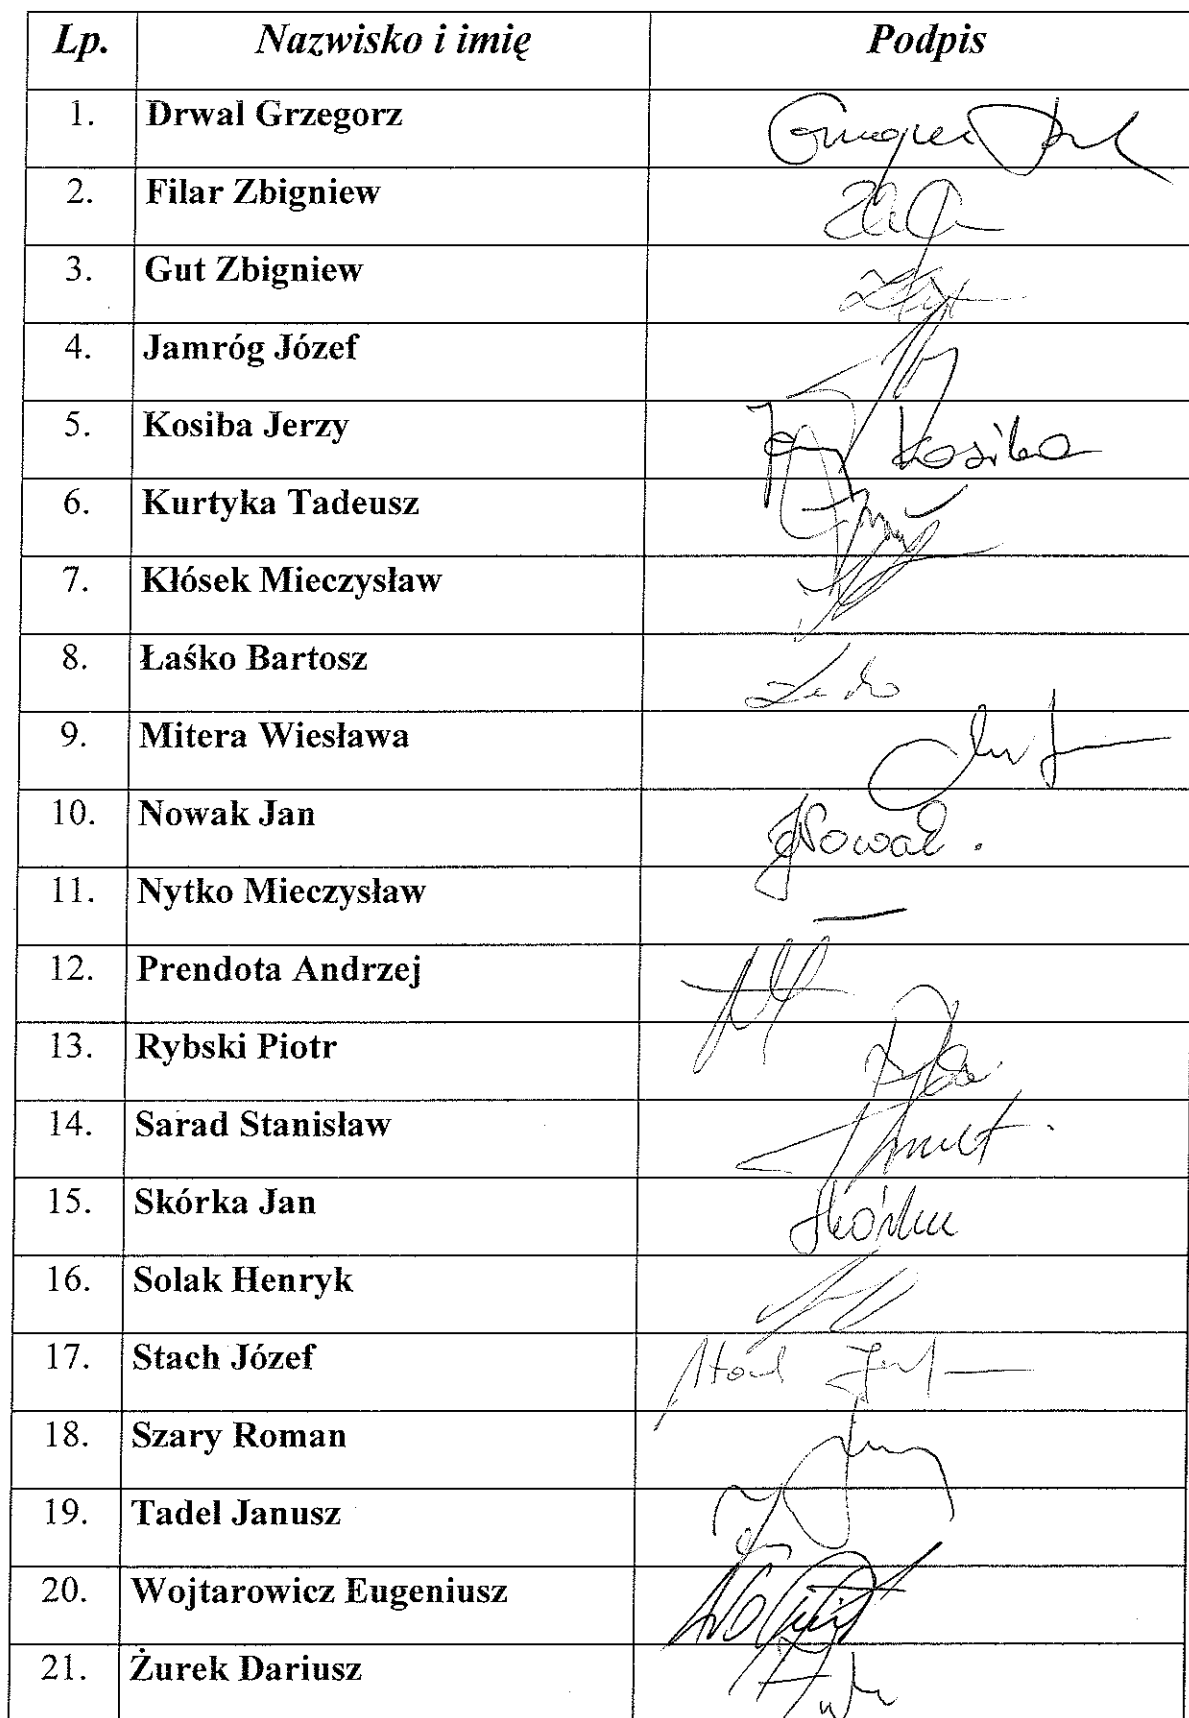 Lp. Nazwisko i imię Podpis
1. Drwal Grzegorz
2. Filar Zbigniew
3. Gut Zbigniew
4. Jamróg Józef
5. Kosiba Jerzy Jerzy Kosiba
6. Kurtyka Tadeusz
7. Kłósek Mieczysław
8. Łaśko Bartosz
9. Mitera Wiesława
10. Nowak Jan JNowak.
11. Nytko Mieczysław —
12. Prendota Andrzej
13. Rybski Piotr
14. Sarad Stanisław
15. Skórka Jan Skórka
16. Solak Henryk
17. Stach Józef Stach Józef
18. Szary Roman
19. Tadel Janusz
20. Wojtarowicz Eugeniusz
21. Żurek Dariusz